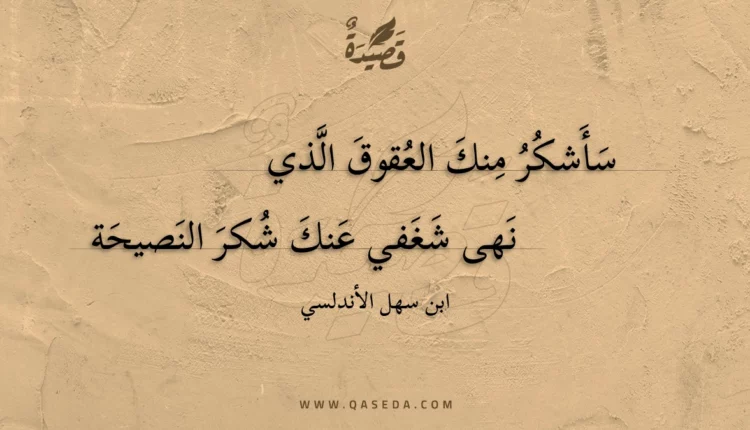 قَصِيْدَةٌ
سَأَشكُرُ مِنكَ العُقوقَ الَّذي
نَهى شَغَفي عَنكَ شُكرَ النَصيحَة
ابن سهل الأندلسي
WWW.QASEDA.COM